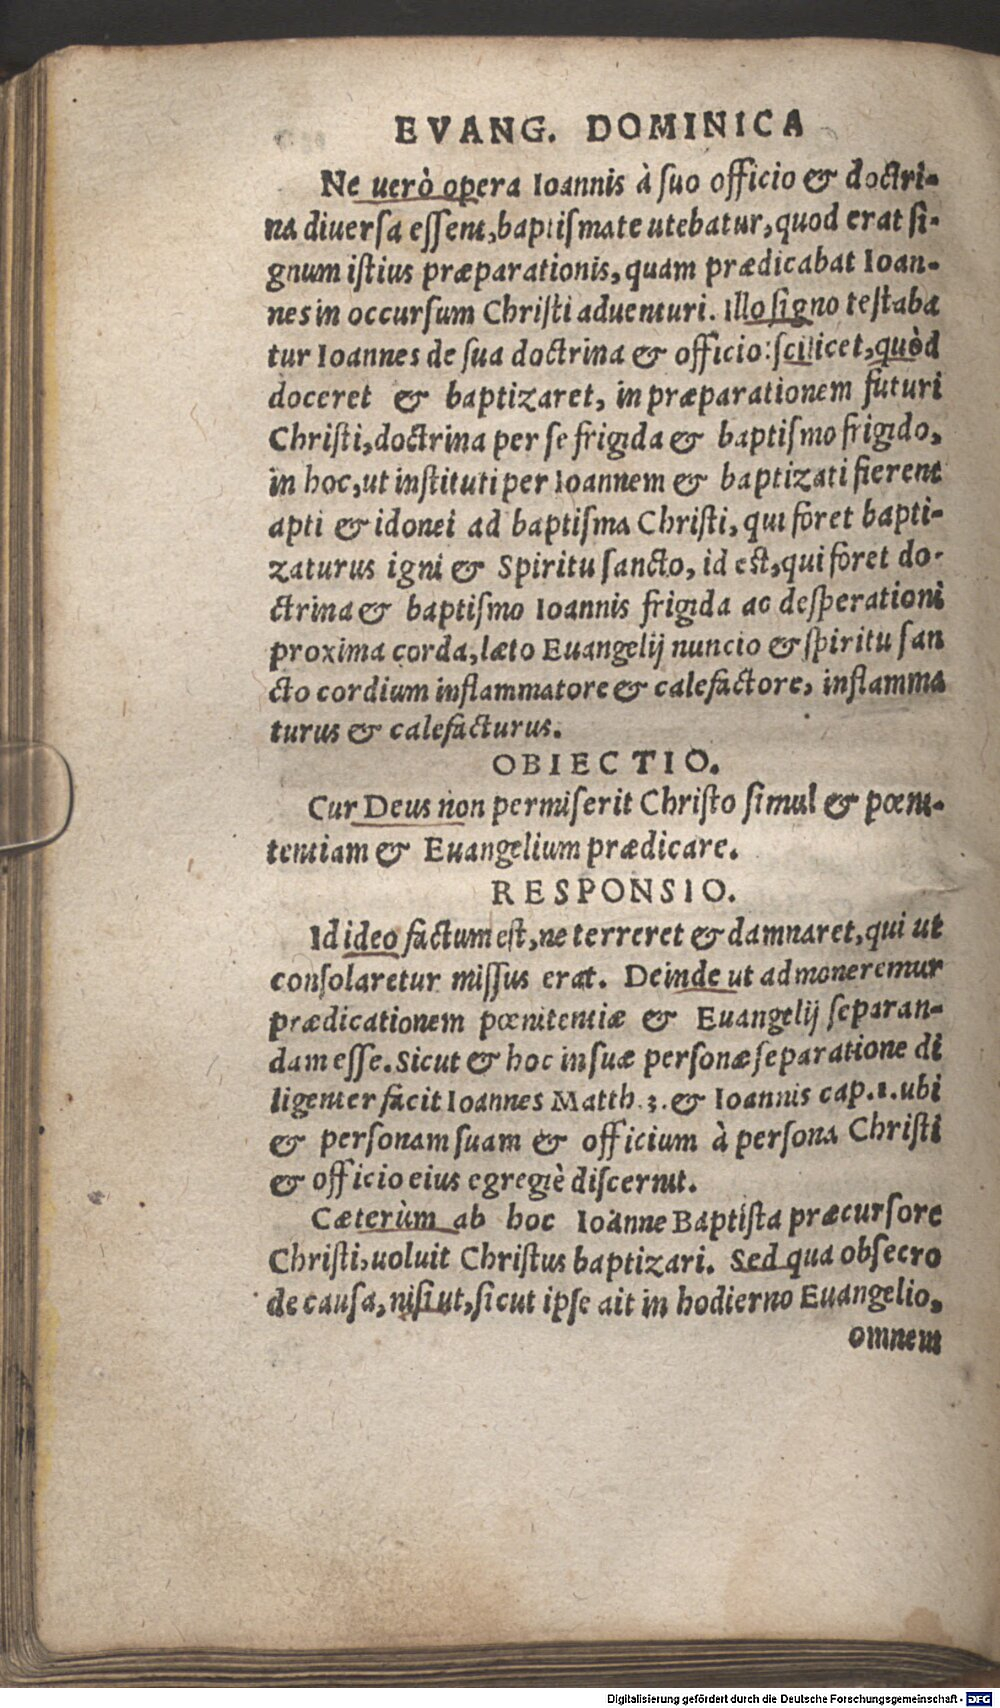 EVANG. DOMINICA
Ne uerò opera Ioannis à suo officio & doctri-
na diuersa essent, baptismate utebatur, quod erat si-
gnum istius præparationis, quam prædicabat Ioan-
nes in occursum Christi aduenturi. Illo signo testaba
tur Ioannes de sua doctrina & officio: scilicet, quòd
doceret & baptizaret, in præparationem futuri
Christi, doctrina per se frigida & baptismo frigido,
in hoc, ut instituti per Ioannem & baptizati fierent
apti & idonei ad baptisma Christi, qui foret bapti-
zaturus igni & Spiritu sancto, id est, qui foret do-
ctrina & baptismo Ioannis frigida ac desperationi
proxima corda, læto Euangelij nuncio & spiritu san
cto cordium inflammatore & calefactore, inflamma
turus & calefacturus.
OBIECTIO.
Cur Deus non permiserit Christo simul & pœni-
tentiam & Euangelium prædicare.
RESPONSIO.
Id ideo factum est, ne terreret & damnaret, qui ut
consolaretur missus erat. Deinde ut admoneremur
prædicationem pœnitentiæ & Euangelij separan-
dam esse. Sicut & hoc in suæ personæ separatione di
ligenter facit Ioannes Matth. 3. & Ioannis cap. 1. ubi
& personam suam & officium à persona Christi
& officio eius egregiè discernit.
Cæterùm ab hoc Ioanne Baptista præcursore
Christi, uoluit Christus baptizari. Sed qua obsecro
de causa, nisi ut, sicut ipse ait in hodierno Euangelio,
omnem
Digitalisierung gefördert durch die Deutsche Forschungsgemeinschaft - DFG